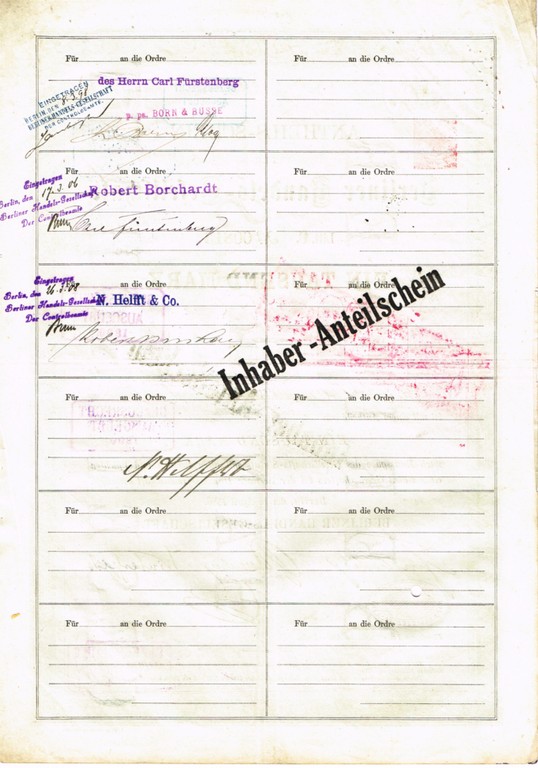 Für an die Ordre
des Herrn Carl Fürstenberg
p. pa. BORN & BUSSE
EINGETRAGEN
BERLIN DEN 8.3.98
BERLINER HANDELS-GESELLSCHAFT
DER CONTROLBEAMTE.
Für an die Ordre
Robert Borchardt
Eingetragen
Berlin, den 17.3.06
Berliner Handels-Gesellschaft
Der Controlbeamte
Carl Fürstenberg
Für an die Ordre
N. Helfft & Co.
Eingetragen
Berlin, den
Berliner Handels-Gesellschaft
Der Controlbeamte
Für an die Ordre
N. Helfft
Für an die Ordre
Für an die Ordre
Für an die Ordre
Für an die Ordre
Für an die Ordre
Inhaber-Anteilschein
Für an die Ordre
Für an die Ordre
Für an die Ordre